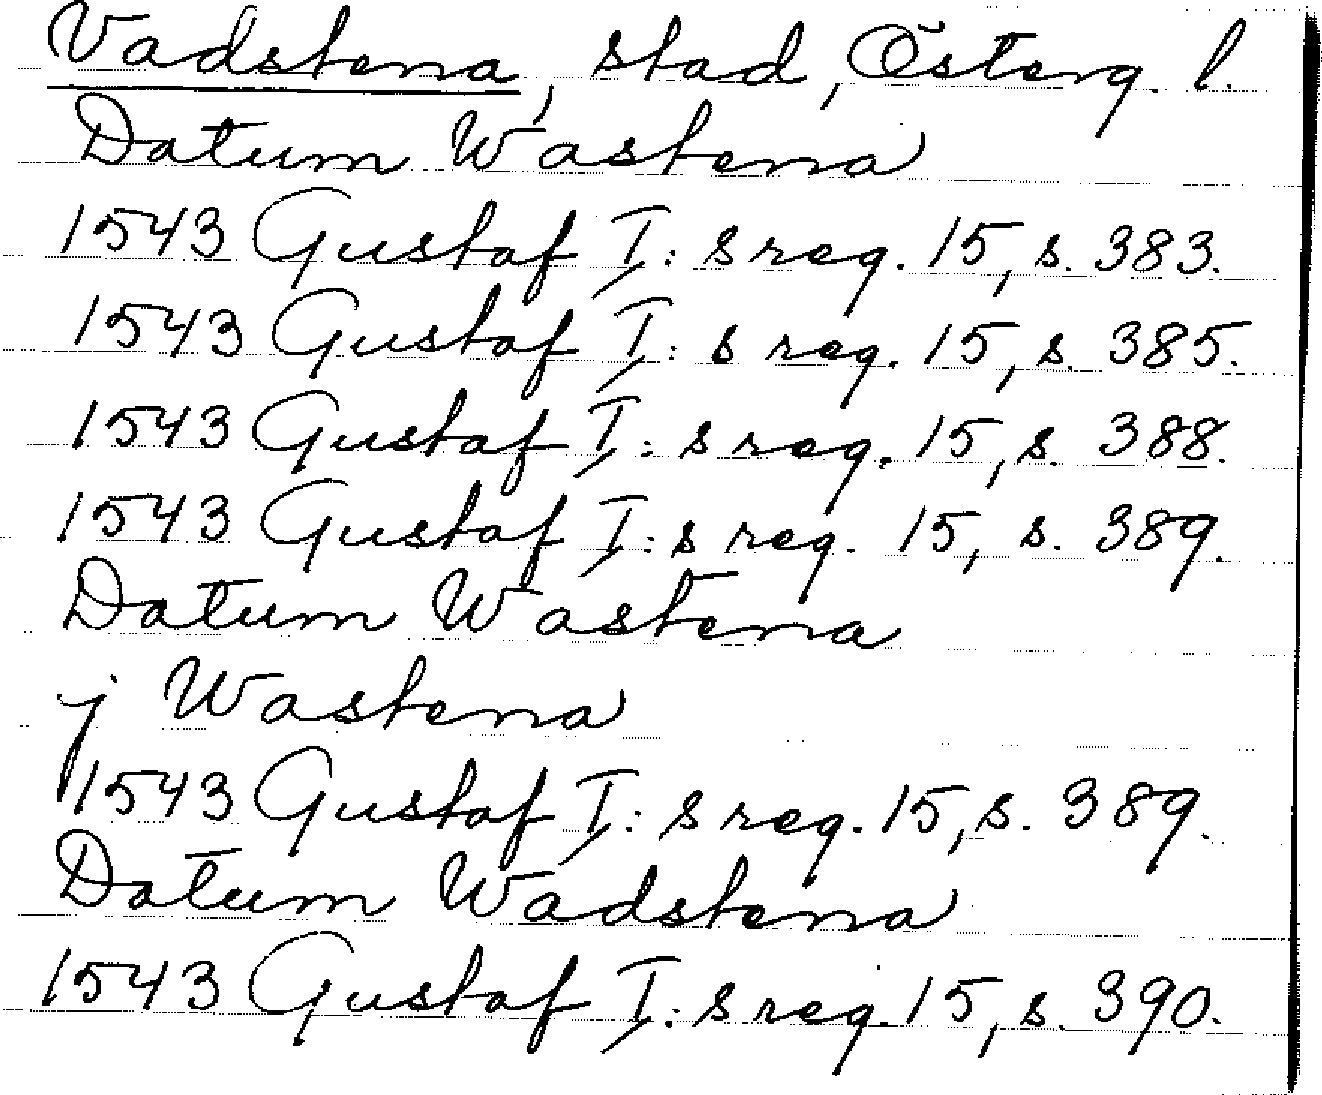 Vadstena, stad, Österg. l.
Datum Wastena
1543 Gustaf I: s reg. 15, s. 383.
1543 Gustaf I: s reg. 15, s. 385.
1543 Gustaf I: s reg. 15, s. 388.
1543 Gustaf I: s reg. 15, s. 389.
Datum Wastena
j Wastena
1543 Gustaf I: s reg. 15, s. 389.
Datum Wadstena
1543 Gustaf I: s reg. 15, s. 390.